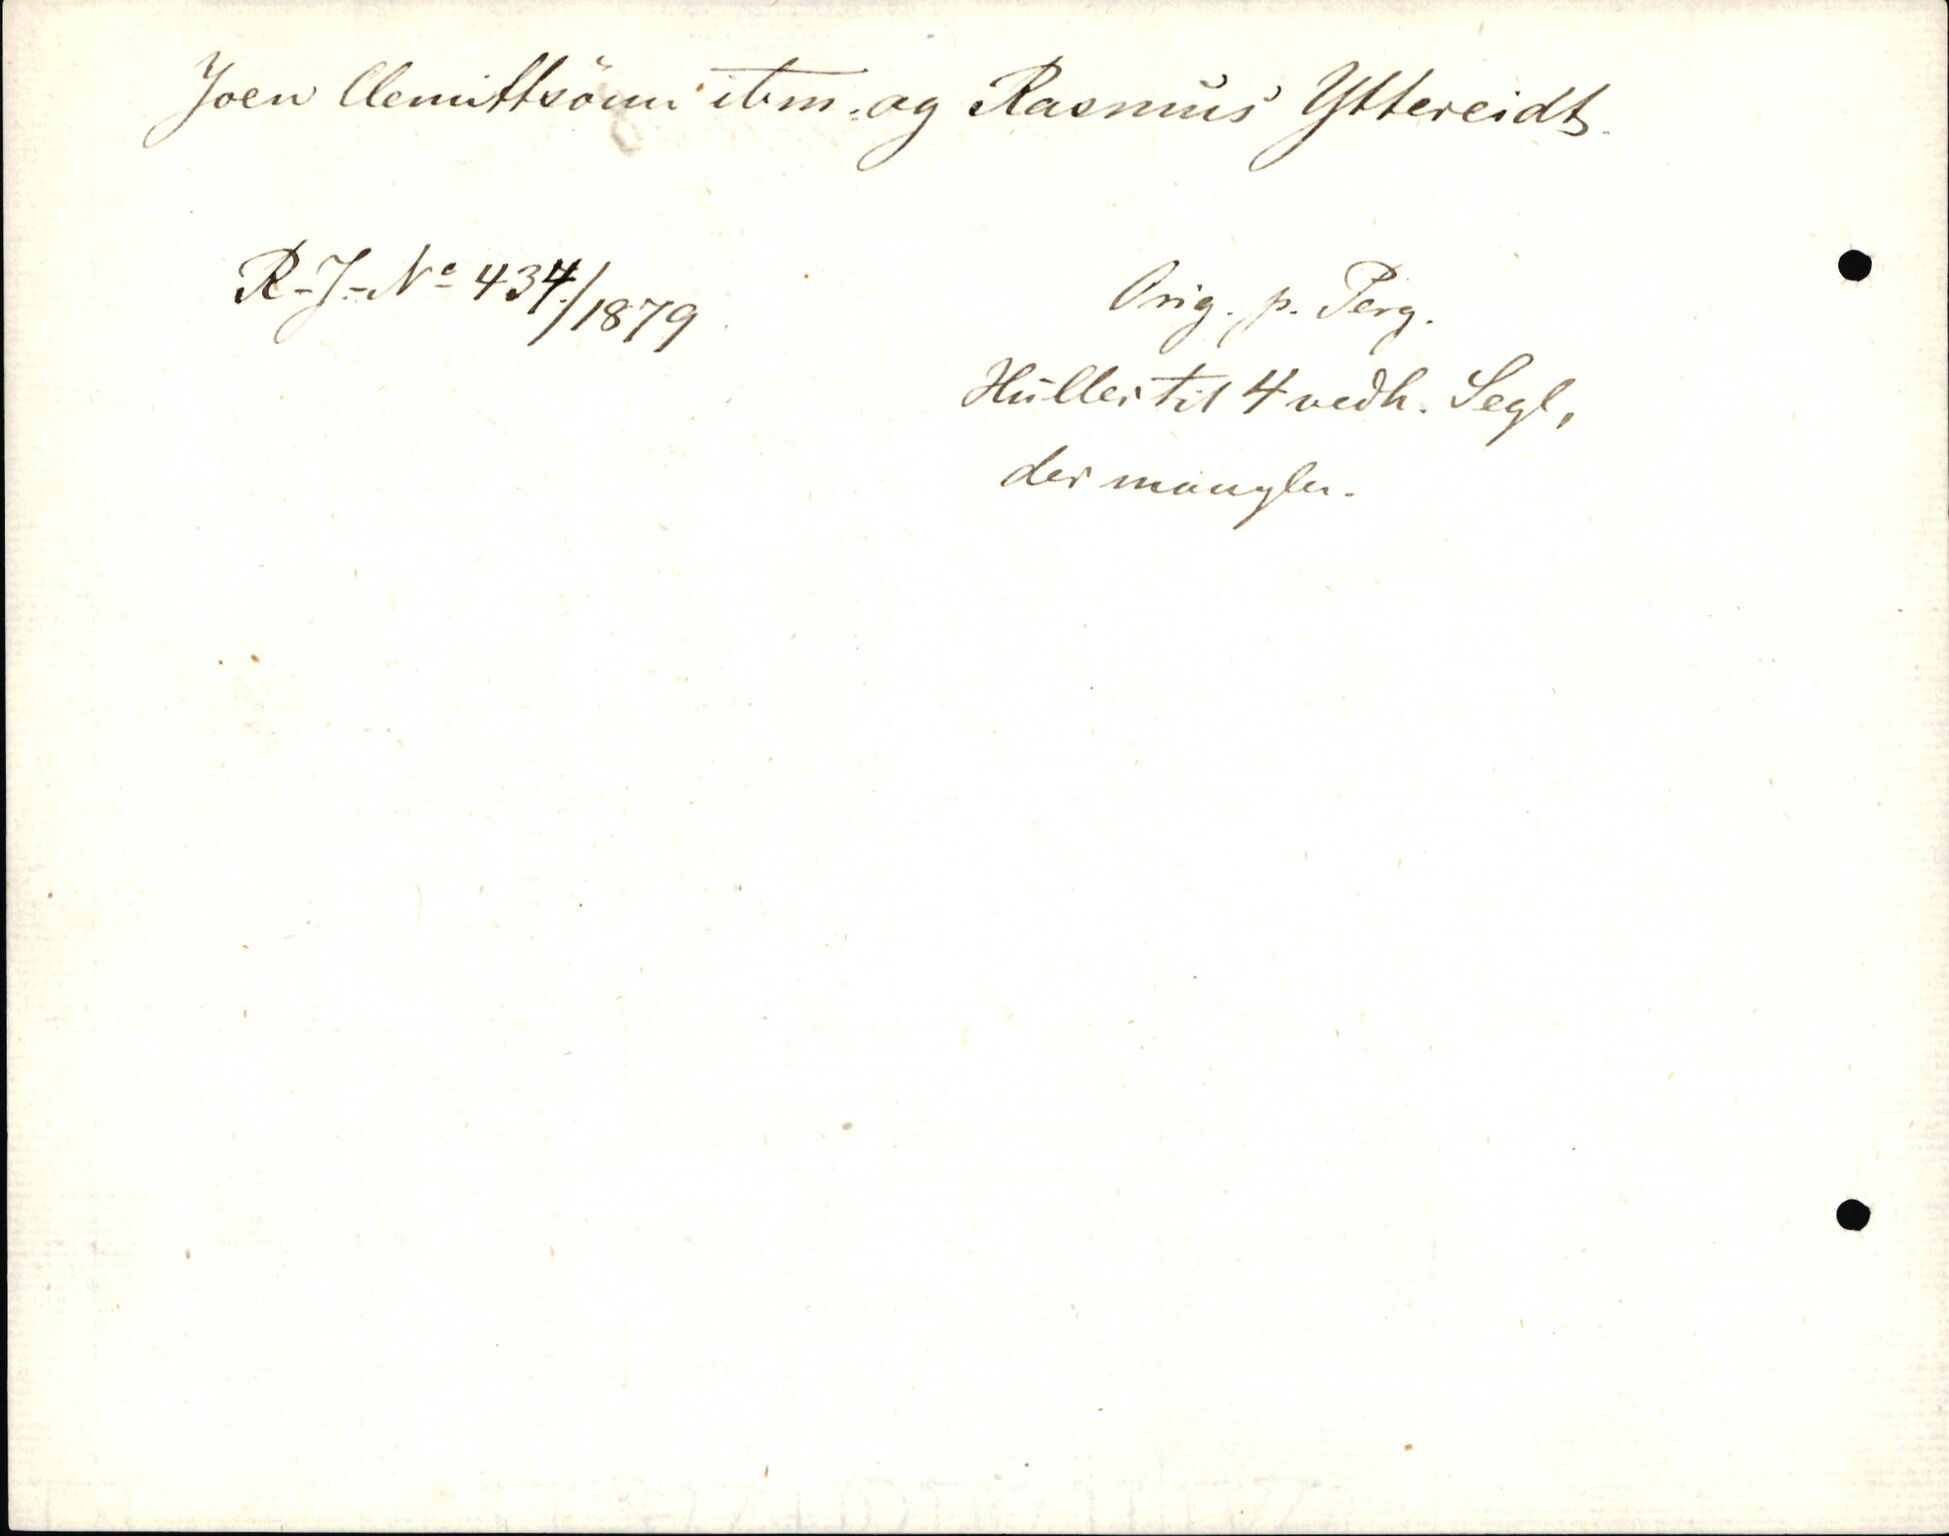 Joen Clemittsönn ibm. og Rasmus Yttereidt.
R-J-Nº 434/1879
Orig. p. Perg.
Huller til 4 vedh. Segl,
der mangler.